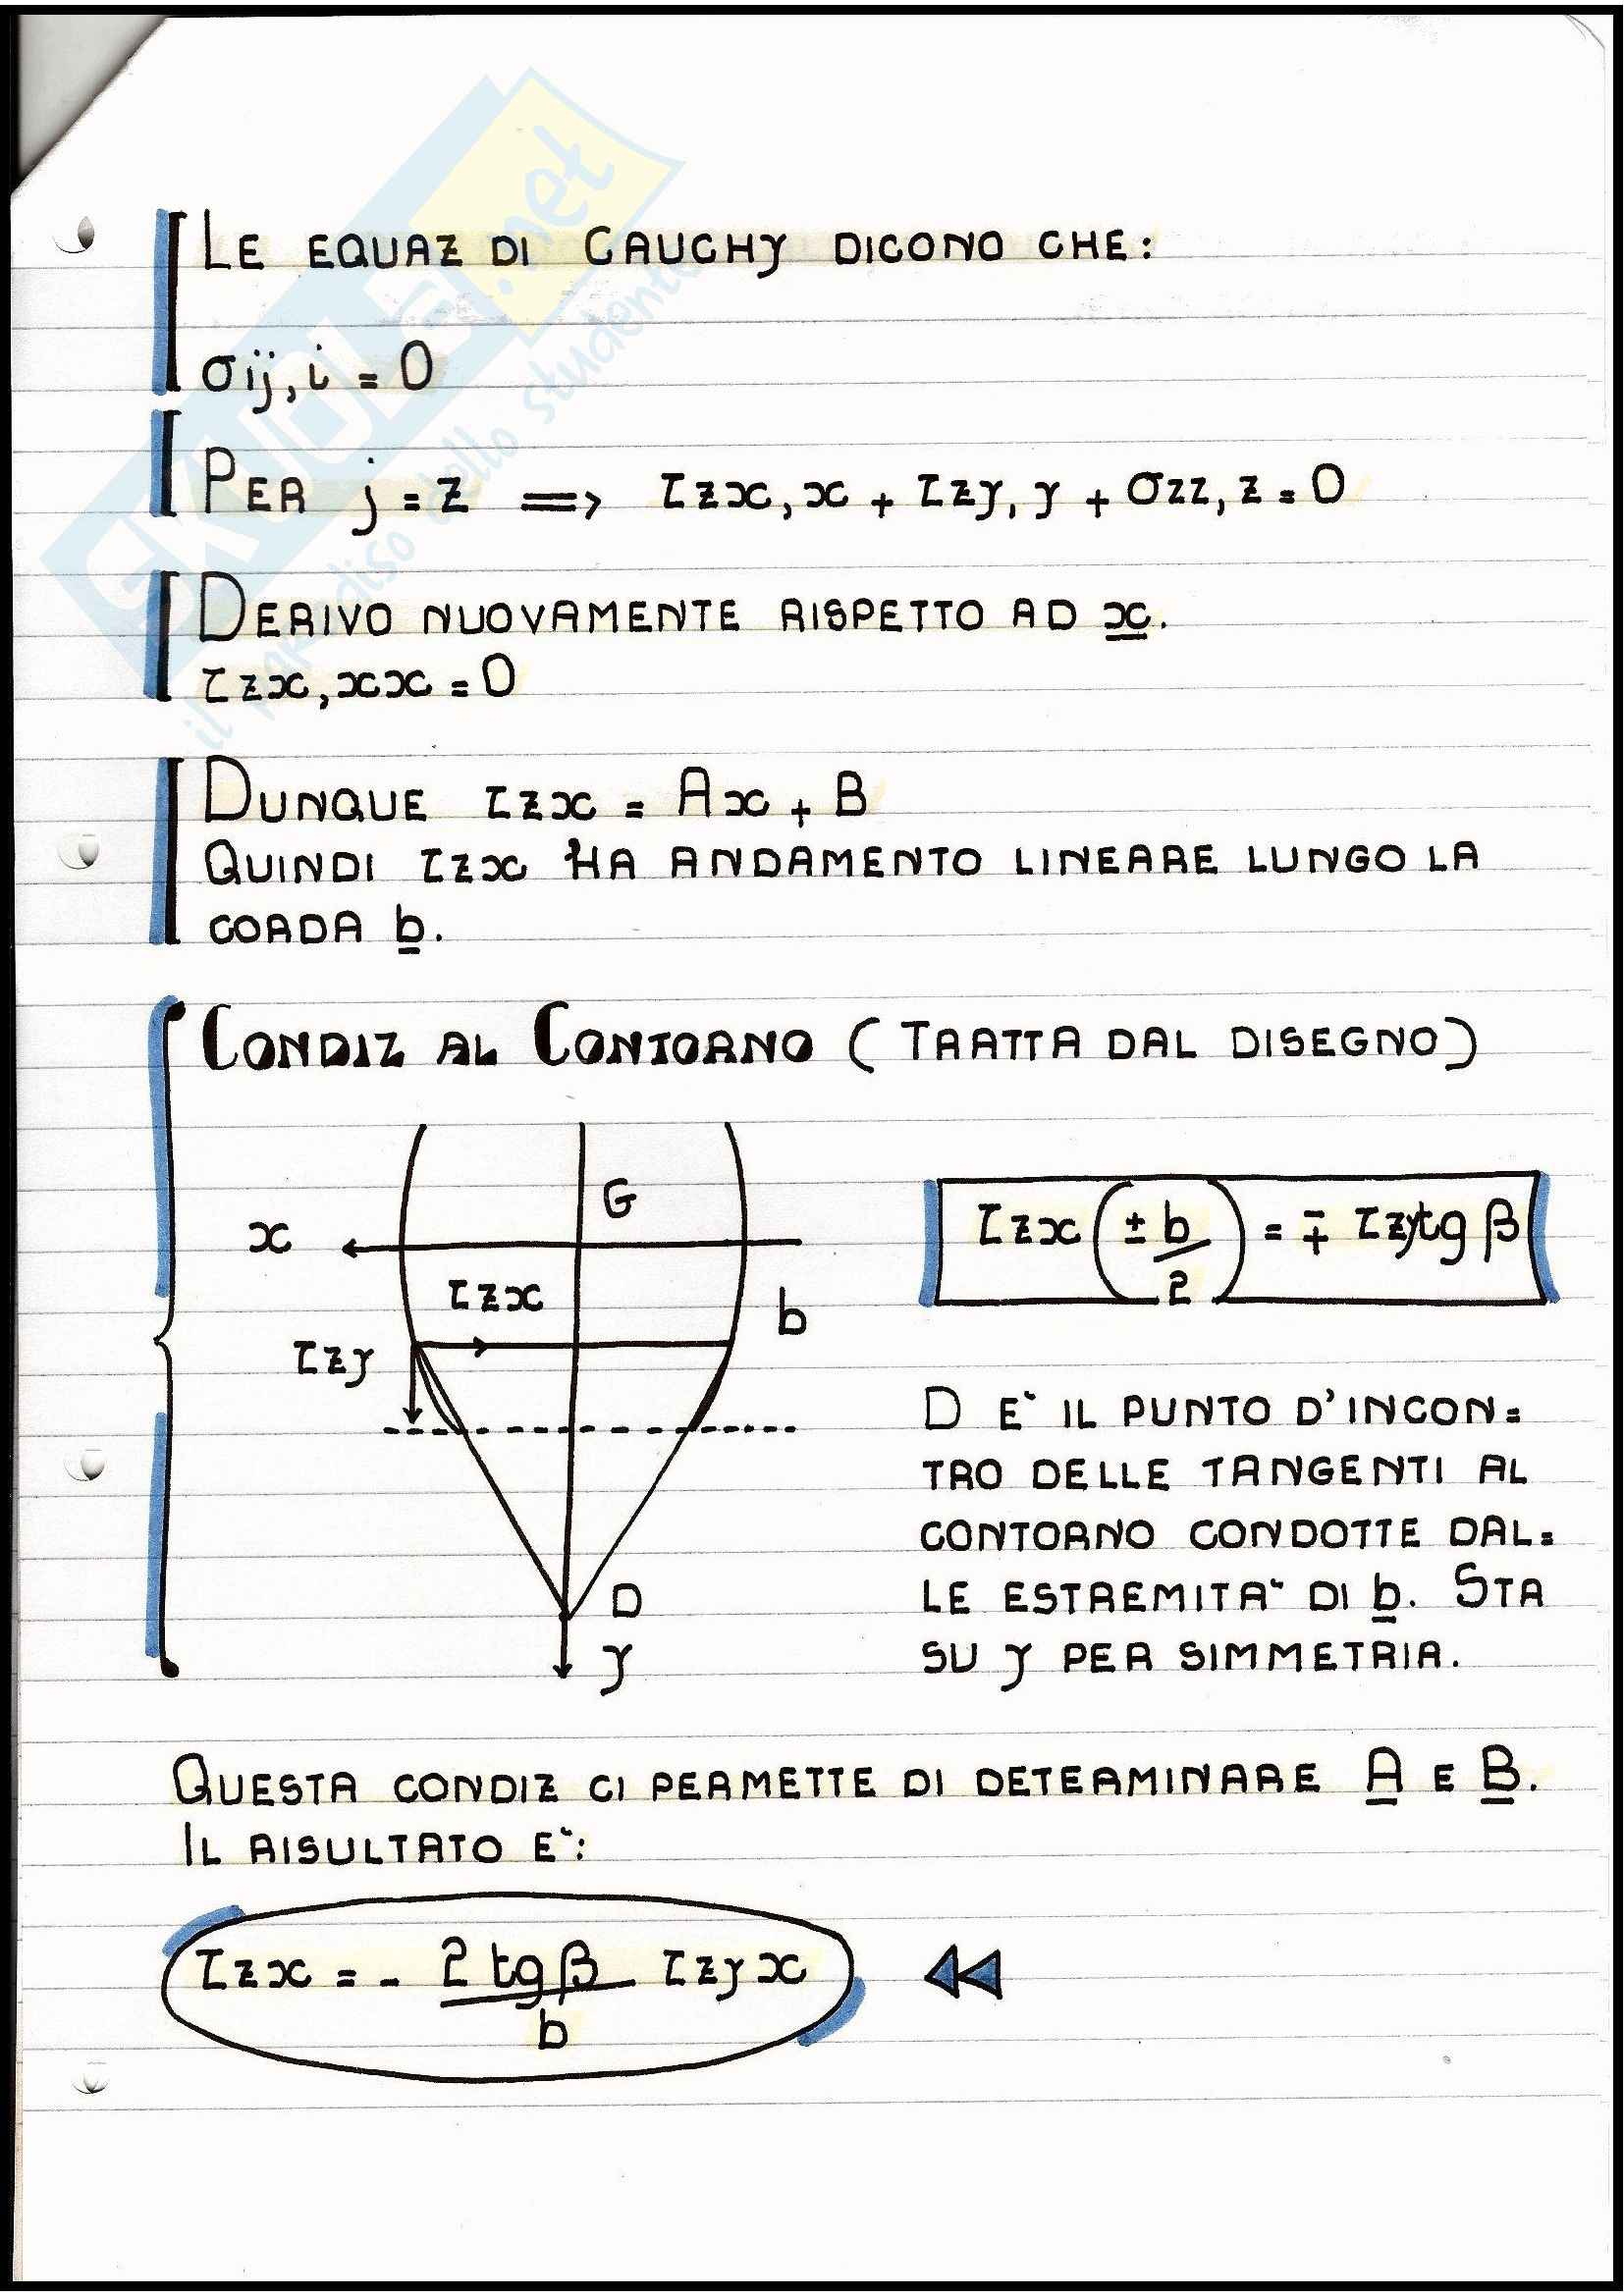 LE EQUAZ DI CAUCHY DICONO CHE:
σij,i = 0
PER j = z => τzx,x + τzy,y + σzz,z = 0
DERIVO NUOVAMENTE RISPETTO AD x.
τzx,xx = 0
DUNQUE τzx = Ax + B
QUINDI τzx HA ANDAMENTO LINEARE LUNGO LA
CORDA b.
CONDIZ AL CONTORNO (TRATTA DAL DISEGNO)
G
x
τzx
b
τzy
D
y
τzx(±b/2) = ∓ τzytg β
D E` IL PUNTO D'INCON=
TRO DELLE TANGENTI AL
CONTORNO CONDOTTE DAL=
LE ESTREMITA` DI b. STA
SU y PER SIMMETRIA.
QUESTA CONDIZ CI PERMETTE DI DETERMINARE A E B.
IL RISULTATO E`:
τzx = - 2 tg β / b τzy x
SKUOLA.net
il paradiso dello studente